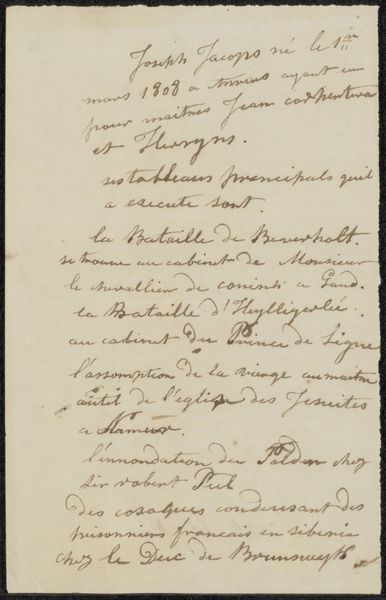 Joseph Jacops né le 1er
mars 1808 a Anvers ayant eu
pour maitres Jean carpentero
et Herreyns.
ses tableaux principals quil
a execute sont.
la Bataille de Beverholt.
se trouve au cabinet de Monsieur
le chevallier de coninck a Gand.
la Bataille d'Heylligerlée.
au cabinet du Prince de Ligne
l'assomption de la vierge au maitre
autel de l'eglise des Jesuites
a Namur.
l'innondation du Polder chez
sir robert Peel
des cosaques conduisant des
prisonniers francais en siberie
chez le Duc de Brunswyk